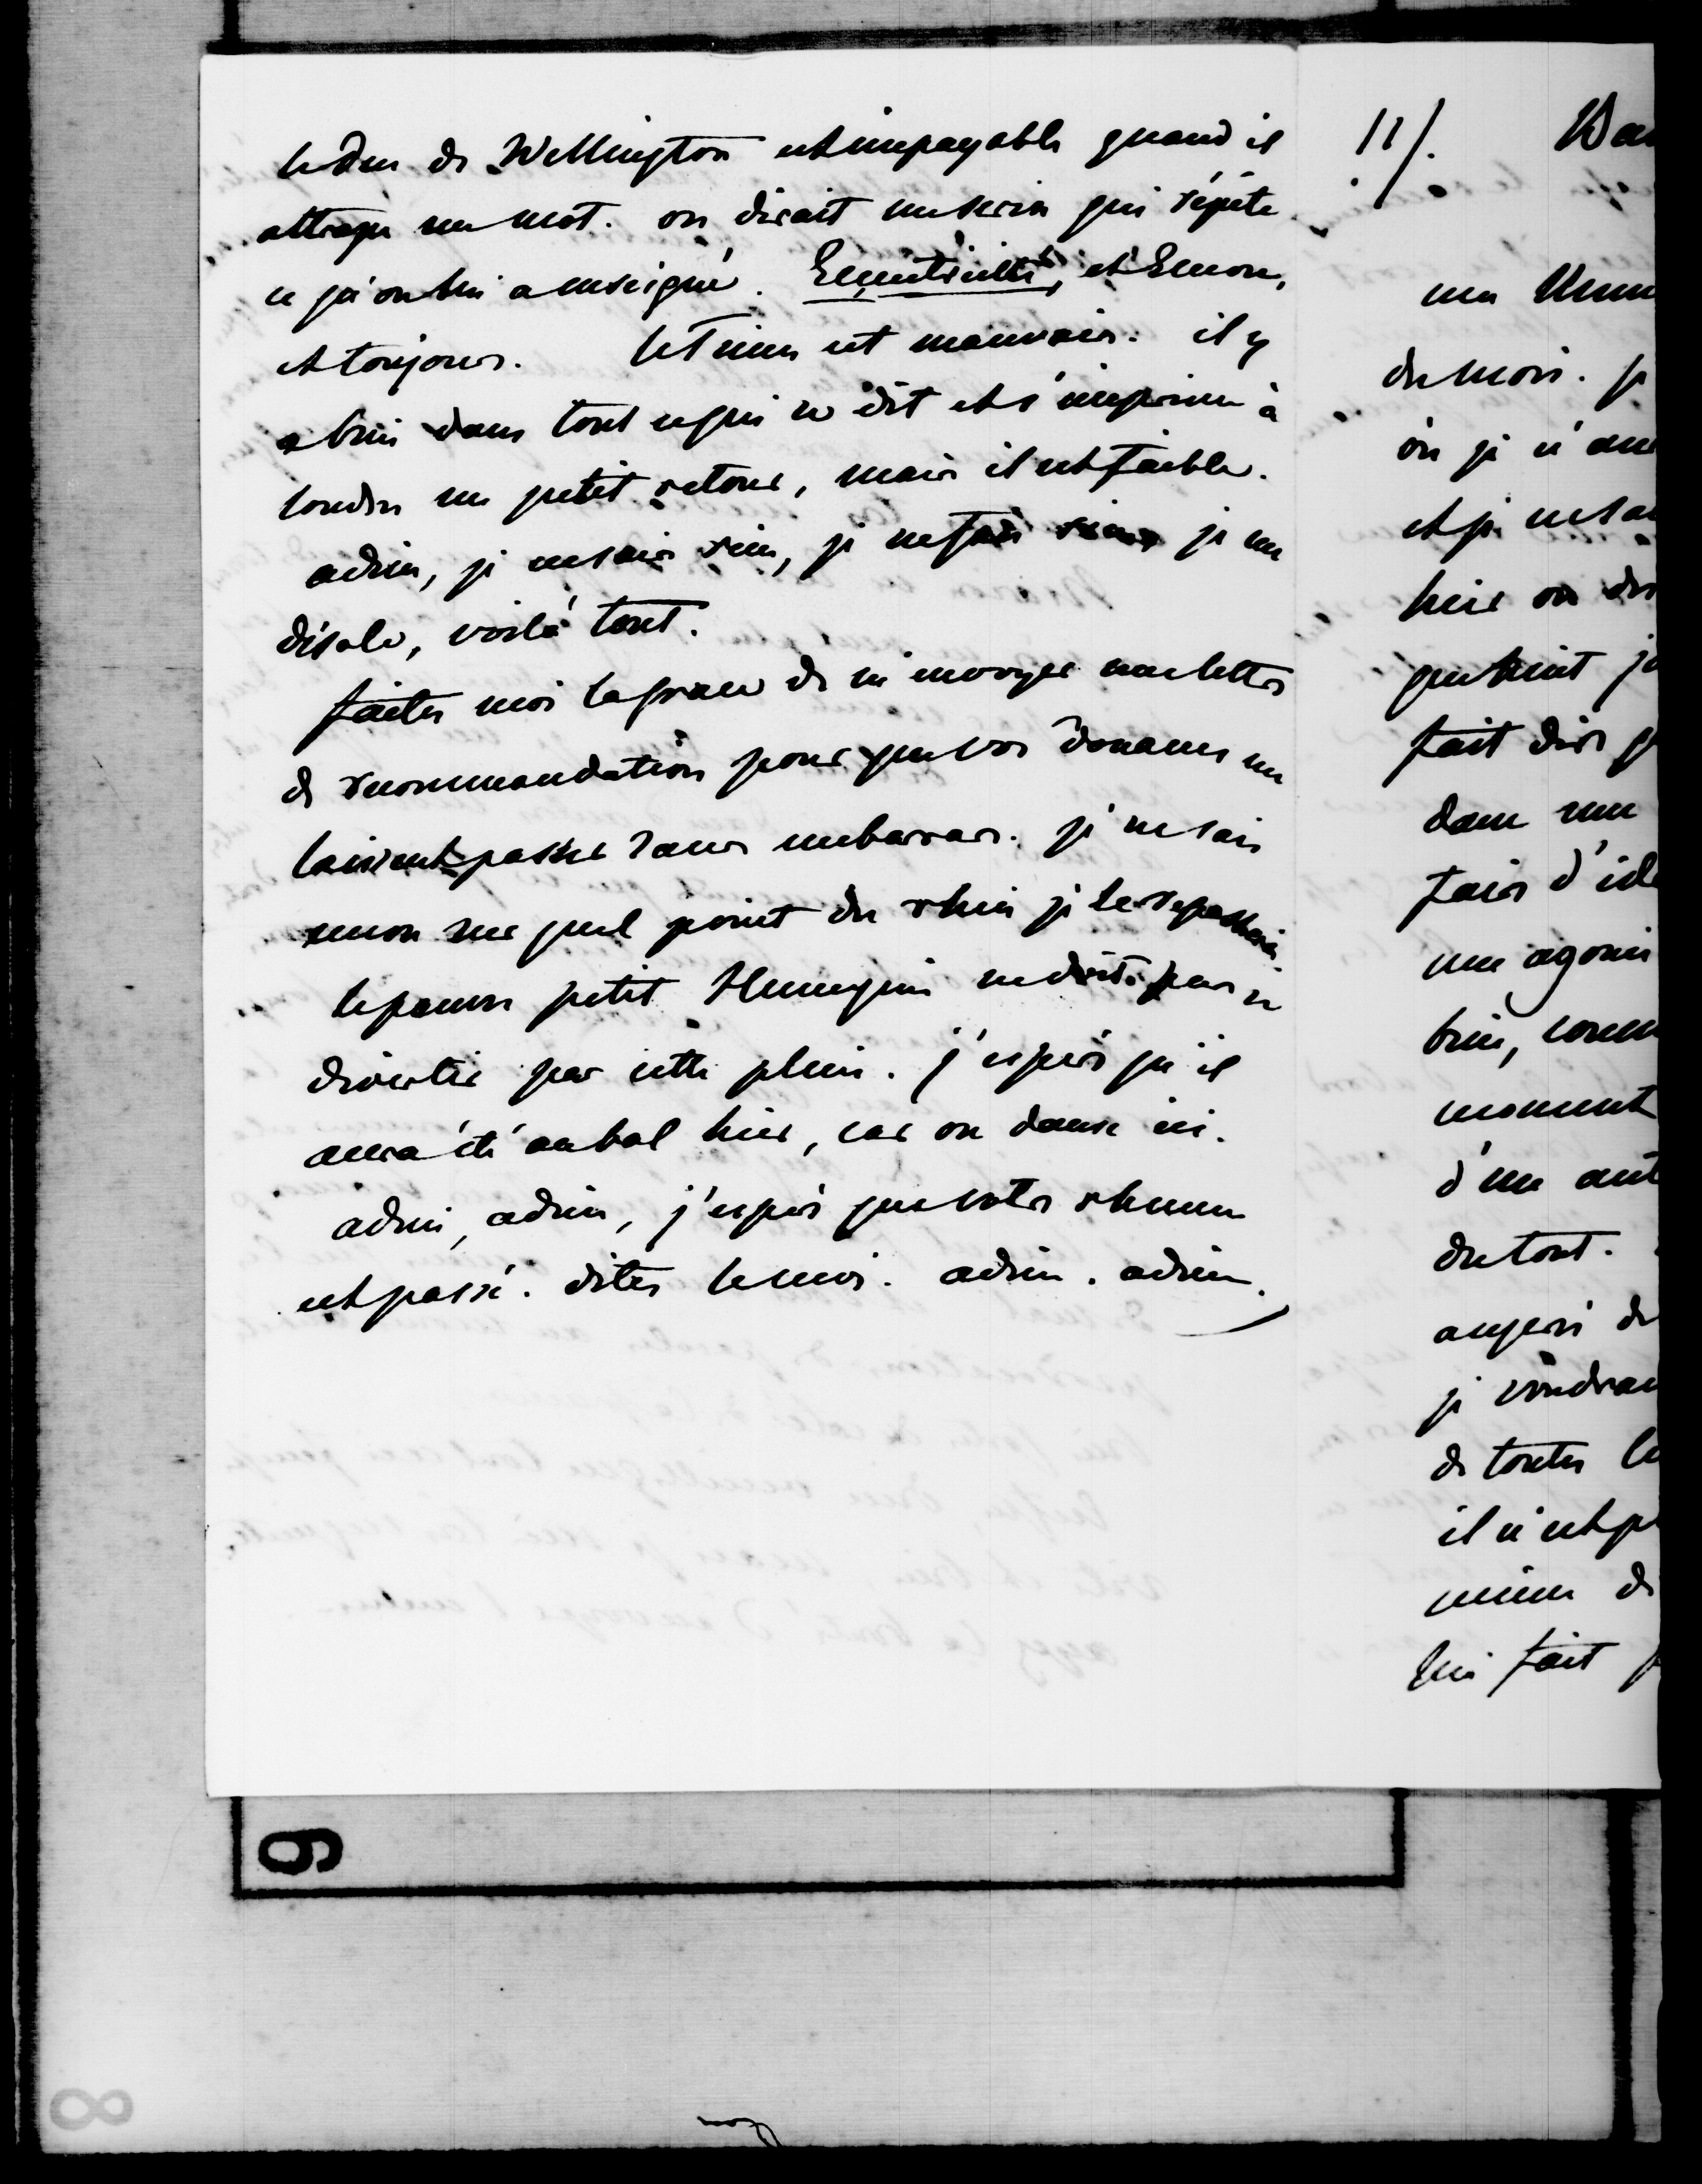 le Duc de Wellington est impayable quand il
attrape un mot. on dirait un serin qui répète
ce qu'on lui a enseigné. et encore,
et toujours. le Times est mauvais. il y
a bien dans tout ce qui se dit et s'imprime à
londres un petit retour, mais il est faible.
adieu, je ne sais rien, je ne fais rien je me
désole, voilà tout.
faites moi la grace de m'envoyer une lettre
de recommandation pour que vos douanes me
laissent passer sans embarras. je ne sais
encore sur quel point du rhin je le repasserai
le pauvre petit Hennequin ne doit pas se
divertir par cette pluie. j'espère qu'il
aura été au bal hier, car on danse ici.
adieu, adieu, j'espère que votre rhume
est passé. dites le moi. adieu. adieu.
11/.
du mois. je
où je n'
et je ne sa
hier on
fait dire q
dans une
fais d'id
une agonie
bien, comm
moment
d'un aut
du tout.
auprès de
je voudrai
de toutes le
il n'est p
même de
lui fait p
9
8